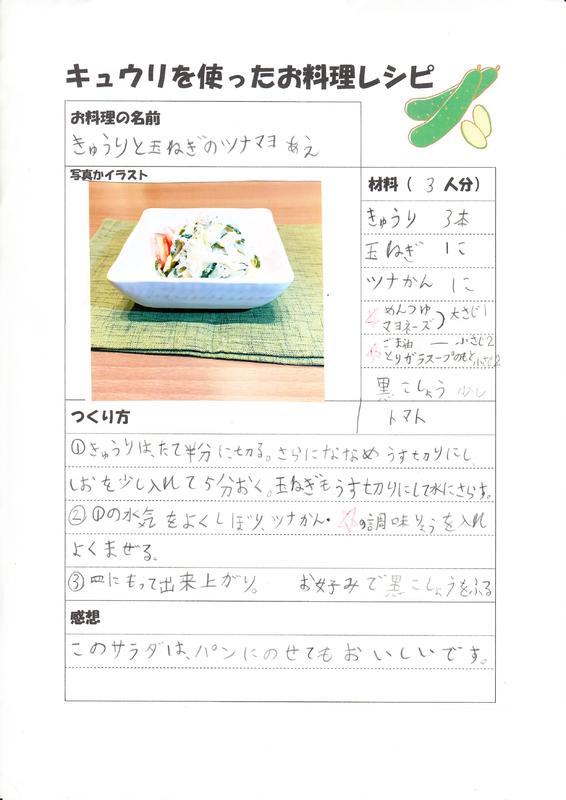 キュウリを使ったお料理レシピ
お料理の名前
きゅうりと玉ねぎのツナマヨあえ
写真かイラスト
材料（3人分）
きゅうり 3本
玉ねぎ 1こ
ツナかん 1こ
☆めんつゆ
マヨネーズ ）大さじ1
☆ごま油 ― 小さじ2
とりガラスープのもと 小さじ2
黒こしょう 少し
トマト
つくり方
①きゅうりは、たて半分に切る。さらにななめうす切りにし
しおを少し入れて5分おく。玉ねぎもうす切りにして水にさらす。
②①の水気をよくしぼり、ツナかん・☆の調味りょうを入れ
よくまぜる。
③皿にもって出来上がり。 お好みで黒こしょうをふる
感想
このサラダは、パンにのせてもおいしいです。